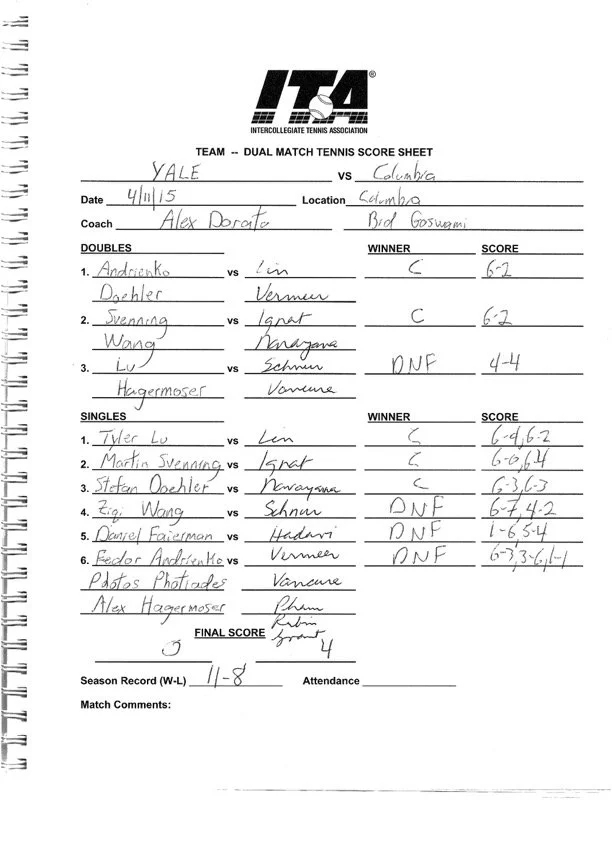 ITA®
INTERCOLLEGIATE TENNIS ASSOCIATION
TEAM -- DUAL MATCH TENNIS SCORE SHEET
YALE vs Columbia
Date 4/11/15 Location Columbia
Coach Alex Dorato Bid Goswami
DOUBLES WINNER SCORE
1. Andrienko vs Lin C 6-2
Doehler Vermeer
2. Svenning vs Ignat C 6-2
Wang Narayana
3. Lu vs Schnur DNF 4-4
Hagermoser Vancura
SINGLES WINNER SCORE
1. Tyler Lu vs Lin C 6-4, 6-2
2. Martin Svenning vs Ignat C 6-0, 6-4
3. Stefan Doehler vs Narayana C 6-3, 6-3
4. Ziqi Wang vs Schnur DNF 6-7, 4-2
5. Daniel Faierman vs Hadavi DNF 1-6, 5-4
6. Fedor Andrienko vs Vermeer DNF 6-3, 3-6, 1-1
Photos Photiades Vancura
Alex Hagermoser Pham
Rubin
FINAL SCORE Grant
0 4
Season Record (W-L) 11-8 Attendance
Match Comments: